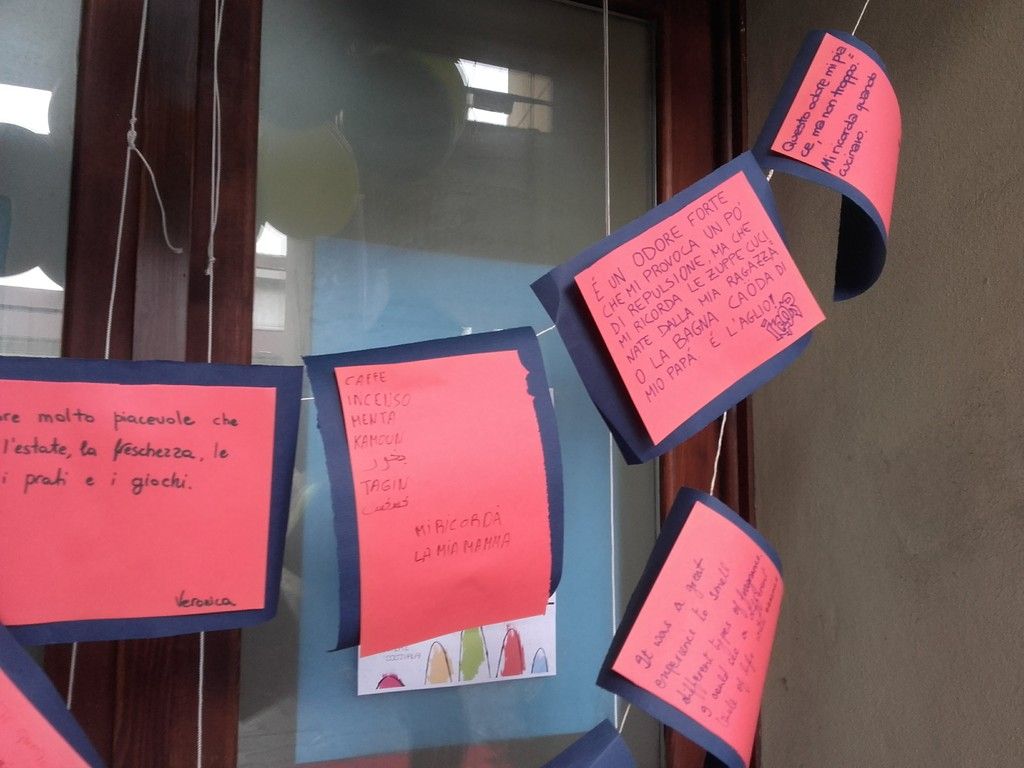 Questo odore mi pia
ce, ma non troppo."
Mi ricorda quando
cucinavo.
È UN ODORE FORTE
CHE MI PROVOCA UN PO'
DI REPULSIONE, MA CHE
MI RICORDA LE ZUPPE CUCI
NATE DALLA MIA RAGAZZA
O LA BAGNA CAÖDA DI
MIO PAPÀ. È L'AGLIO!
re molto piacevole che
l'estate, la freschezza, le
i prati e i giochi.
Veronica
CAFFE
INCENSO
MENTA
KAMOUN
بخور
TAGIN
MI RICORDÀ
LA MIA MAMMA
It was a great
experience to smell
different types of fragrance